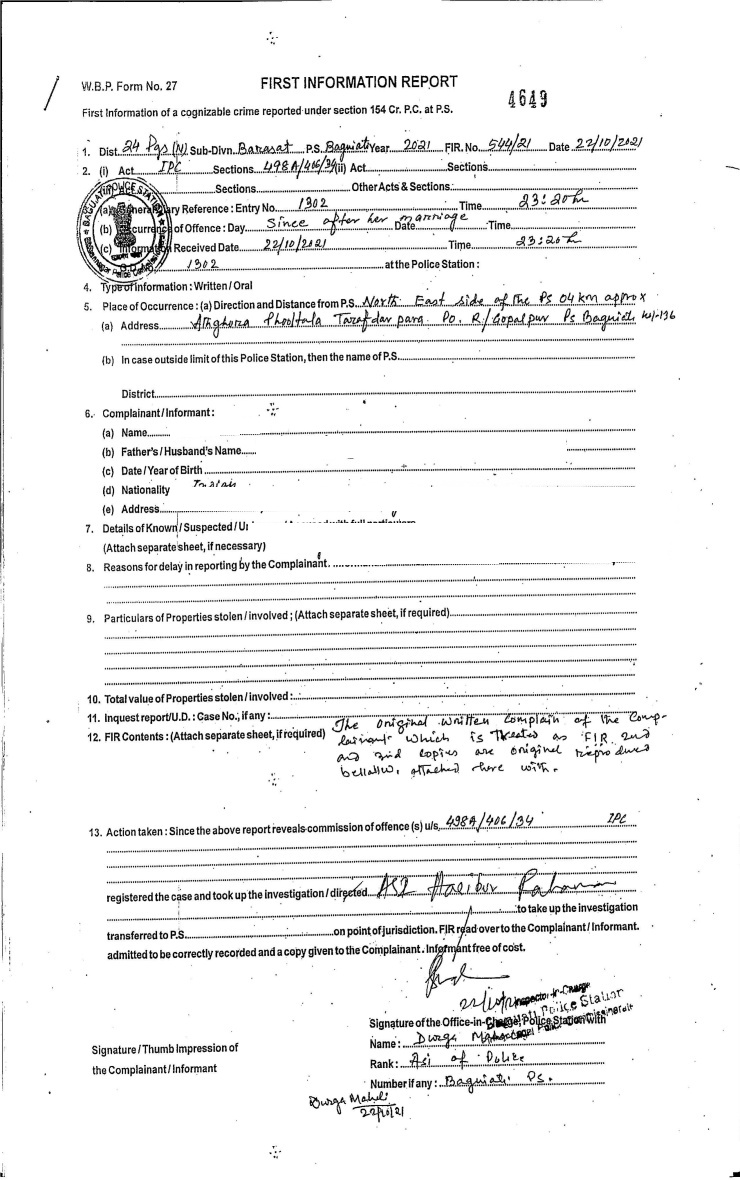 W.B.P. Form No. 27
FIRST INFORMATION REPORT
4649
First Information of a cognizable crime reported under section 154 Cr. P.C. at P.S.
1. Dist. 24 Pgs (N) Sub-Divn. Barasat P.S. Baguiati Year 2021 FIR. No. 544/21 Date 22/10/2021
2. (i) Act IPC Sections 498A/406/34 (ii) Act Sections
Sections Other Acts & Sections
(a) General Diary Reference : Entry No. 1302 Time 23:20 h
(b) Occurrence of Offence : Day Since after her marriage Date Time
(c) Information Received Date 22/10/2021 Time 23:20 h
1302 at the Police Station :
4. Type of information : Written / Oral
5. Place of Occurrence : (a) Direction and Distance from P.S. North East side of the PS 04 km approx
(a) Address Atghora Tarafdar para. PO. R/Gopalpur Ps Baguiati -136
(b) In case outside limit of this Police Station, then the name of P.S.
District
6. Complainant / Informant :
(a) Name
(b) Father's / Husband's Name
(c) Date / Year of Birth
(d) Nationality
(e) Address
7. Details of Known / Suspected /
(Attach separate sheet, if necessary)
8. Reasons for delay in reporting by the Complainant.
9. Particulars of Properties stolen / involved ; (Attach separate sheet, if required)
10. Total value of Properties stolen / involved :
11. Inquest report/U.D. : Case No., if any :
12. FIR Contents : (Attach separate sheet, if required) The original written complain of the Comp-
lainant which is treated as FIR and
and copies are original reproduced
attached here with.
13. Action taken : Since the above report reveals commission of offence (s) u/s. 498A/406/34 IPC
registered the case and took up the investigation / directed ASI Habibur Rahaman
to take up the investigation
transferred to P.S. on point of jurisdiction. FIR read over to the Complainant / Informant.
admitted to be correctly recorded and a copy given to the Complainant. Informant free of cost.
Inspector-in-Charge
Police Station
Signature of the Office-in-Charge, Police Station with
Name : Durga
Rank : Asi of Police
Number if any : Baguiati Ps.
Signature / Thumb Impression of
the Complainant / Informant
Durga Maheli
22/10/21